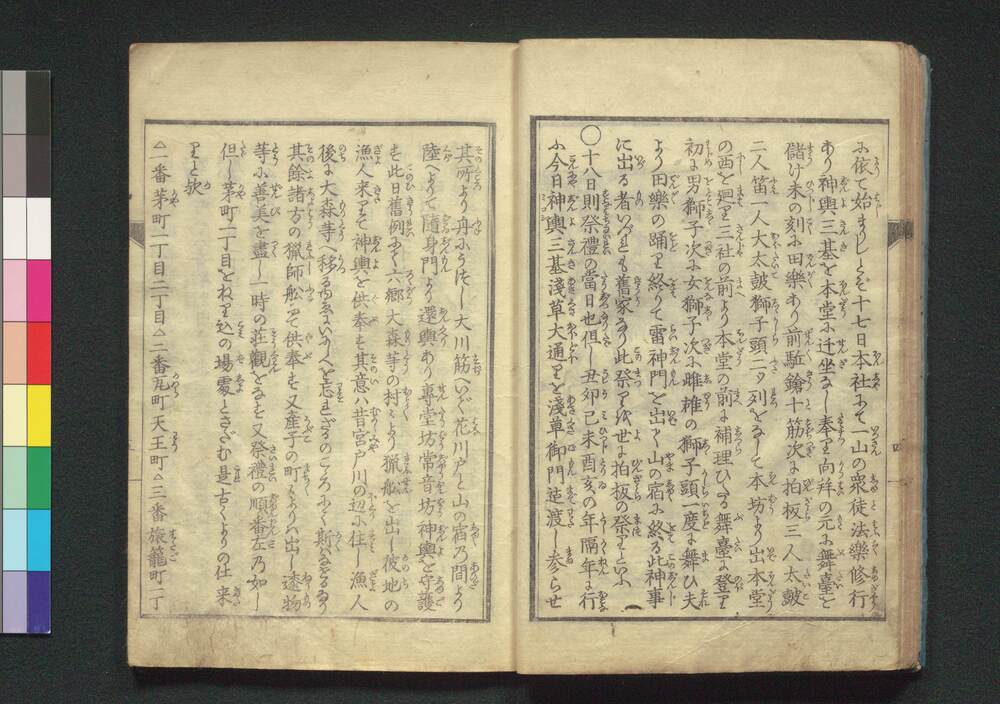 に依て始まりしとぞ十七日本社にて一山の衆徒法樂修行
あり神輿三基を本堂に迁坐なし奉り向拜の元に舞臺を
儲け未の刻に田樂あり前駈鎗十筋次に拍板三人太皷
二人笛一人大太皷獅子頭二ツ列をなして本坊より出本堂
の西を廻り三社の前より本堂の前に補理ひたる舞臺に登り
初に男獅子次に女獅子次に雌雄の獅子頭一度に舞ひ夫
より田樂の踊り終りて雷神門を出て山の宿に終る此神事
に出る者いづれも舊家なり此祭りを世に拍板の祭りといふ
〇十八日則祭禮の當日也但し丑卯巳未酉亥の年隔年に行
ふ今日神輿三基淺草大通りを淺草御門迄渡し参らせ
其所より舟にうつし大川筋へいで花川戸と山の宿乃間より
陸へよりて隨身門より還輿あり專堂坊常音坊神輿を守護
す此日舊例にて六郷大森等の村々より獵船を出し彼地の
漁人来りて神輿を供奉す其意ハ昔宮戸川の辺に住し漁人
後に大森等へ移るゆゑにいにしへを忘れざるのこゝろにて斯はなるなり
其餘諸方の獵師舩にて供奉す又産子の町々よりハ出し透物
等に善美を盡し一時の荘觀をなす又祭禮の順番左乃如し
但し茅町一丁目をねり込の場處とさだむ是古くよりの仕来
りと歟
△一番茅町一丁目二丁目△二番瓦町天王町△三番旅籠町一丁